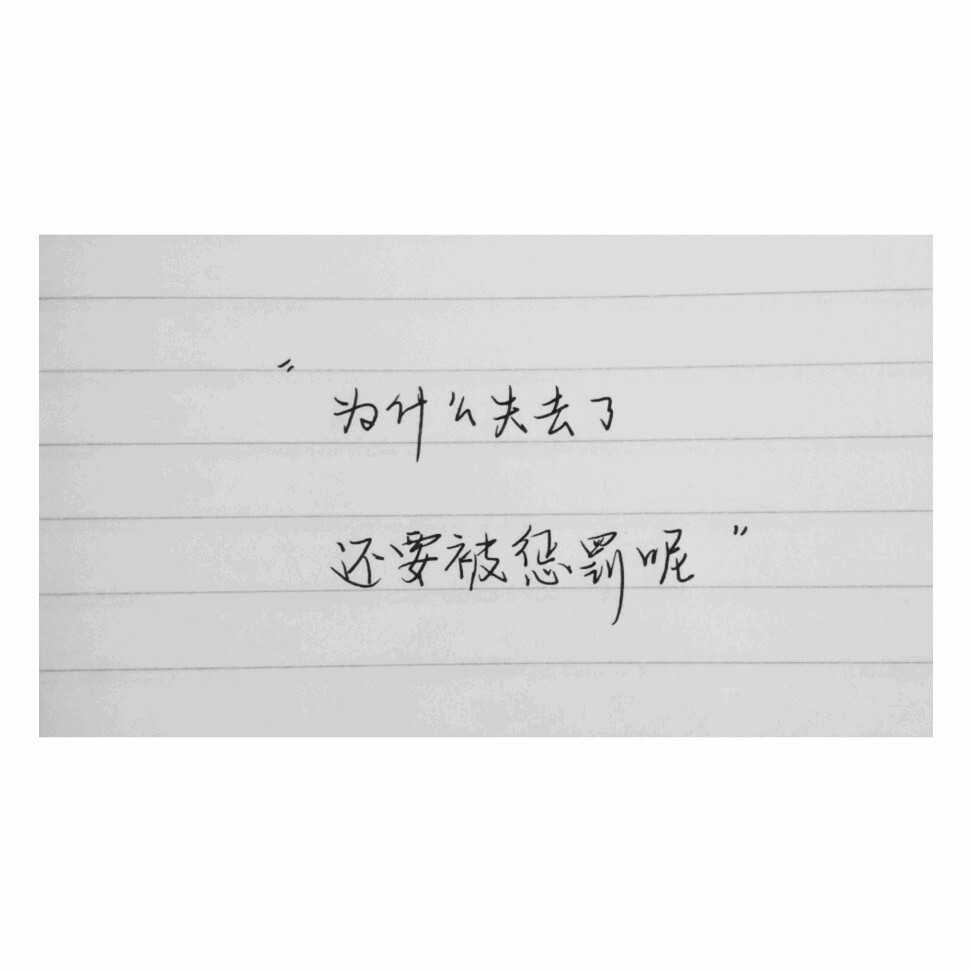 “为什么失去了
还要被惩罚呢”